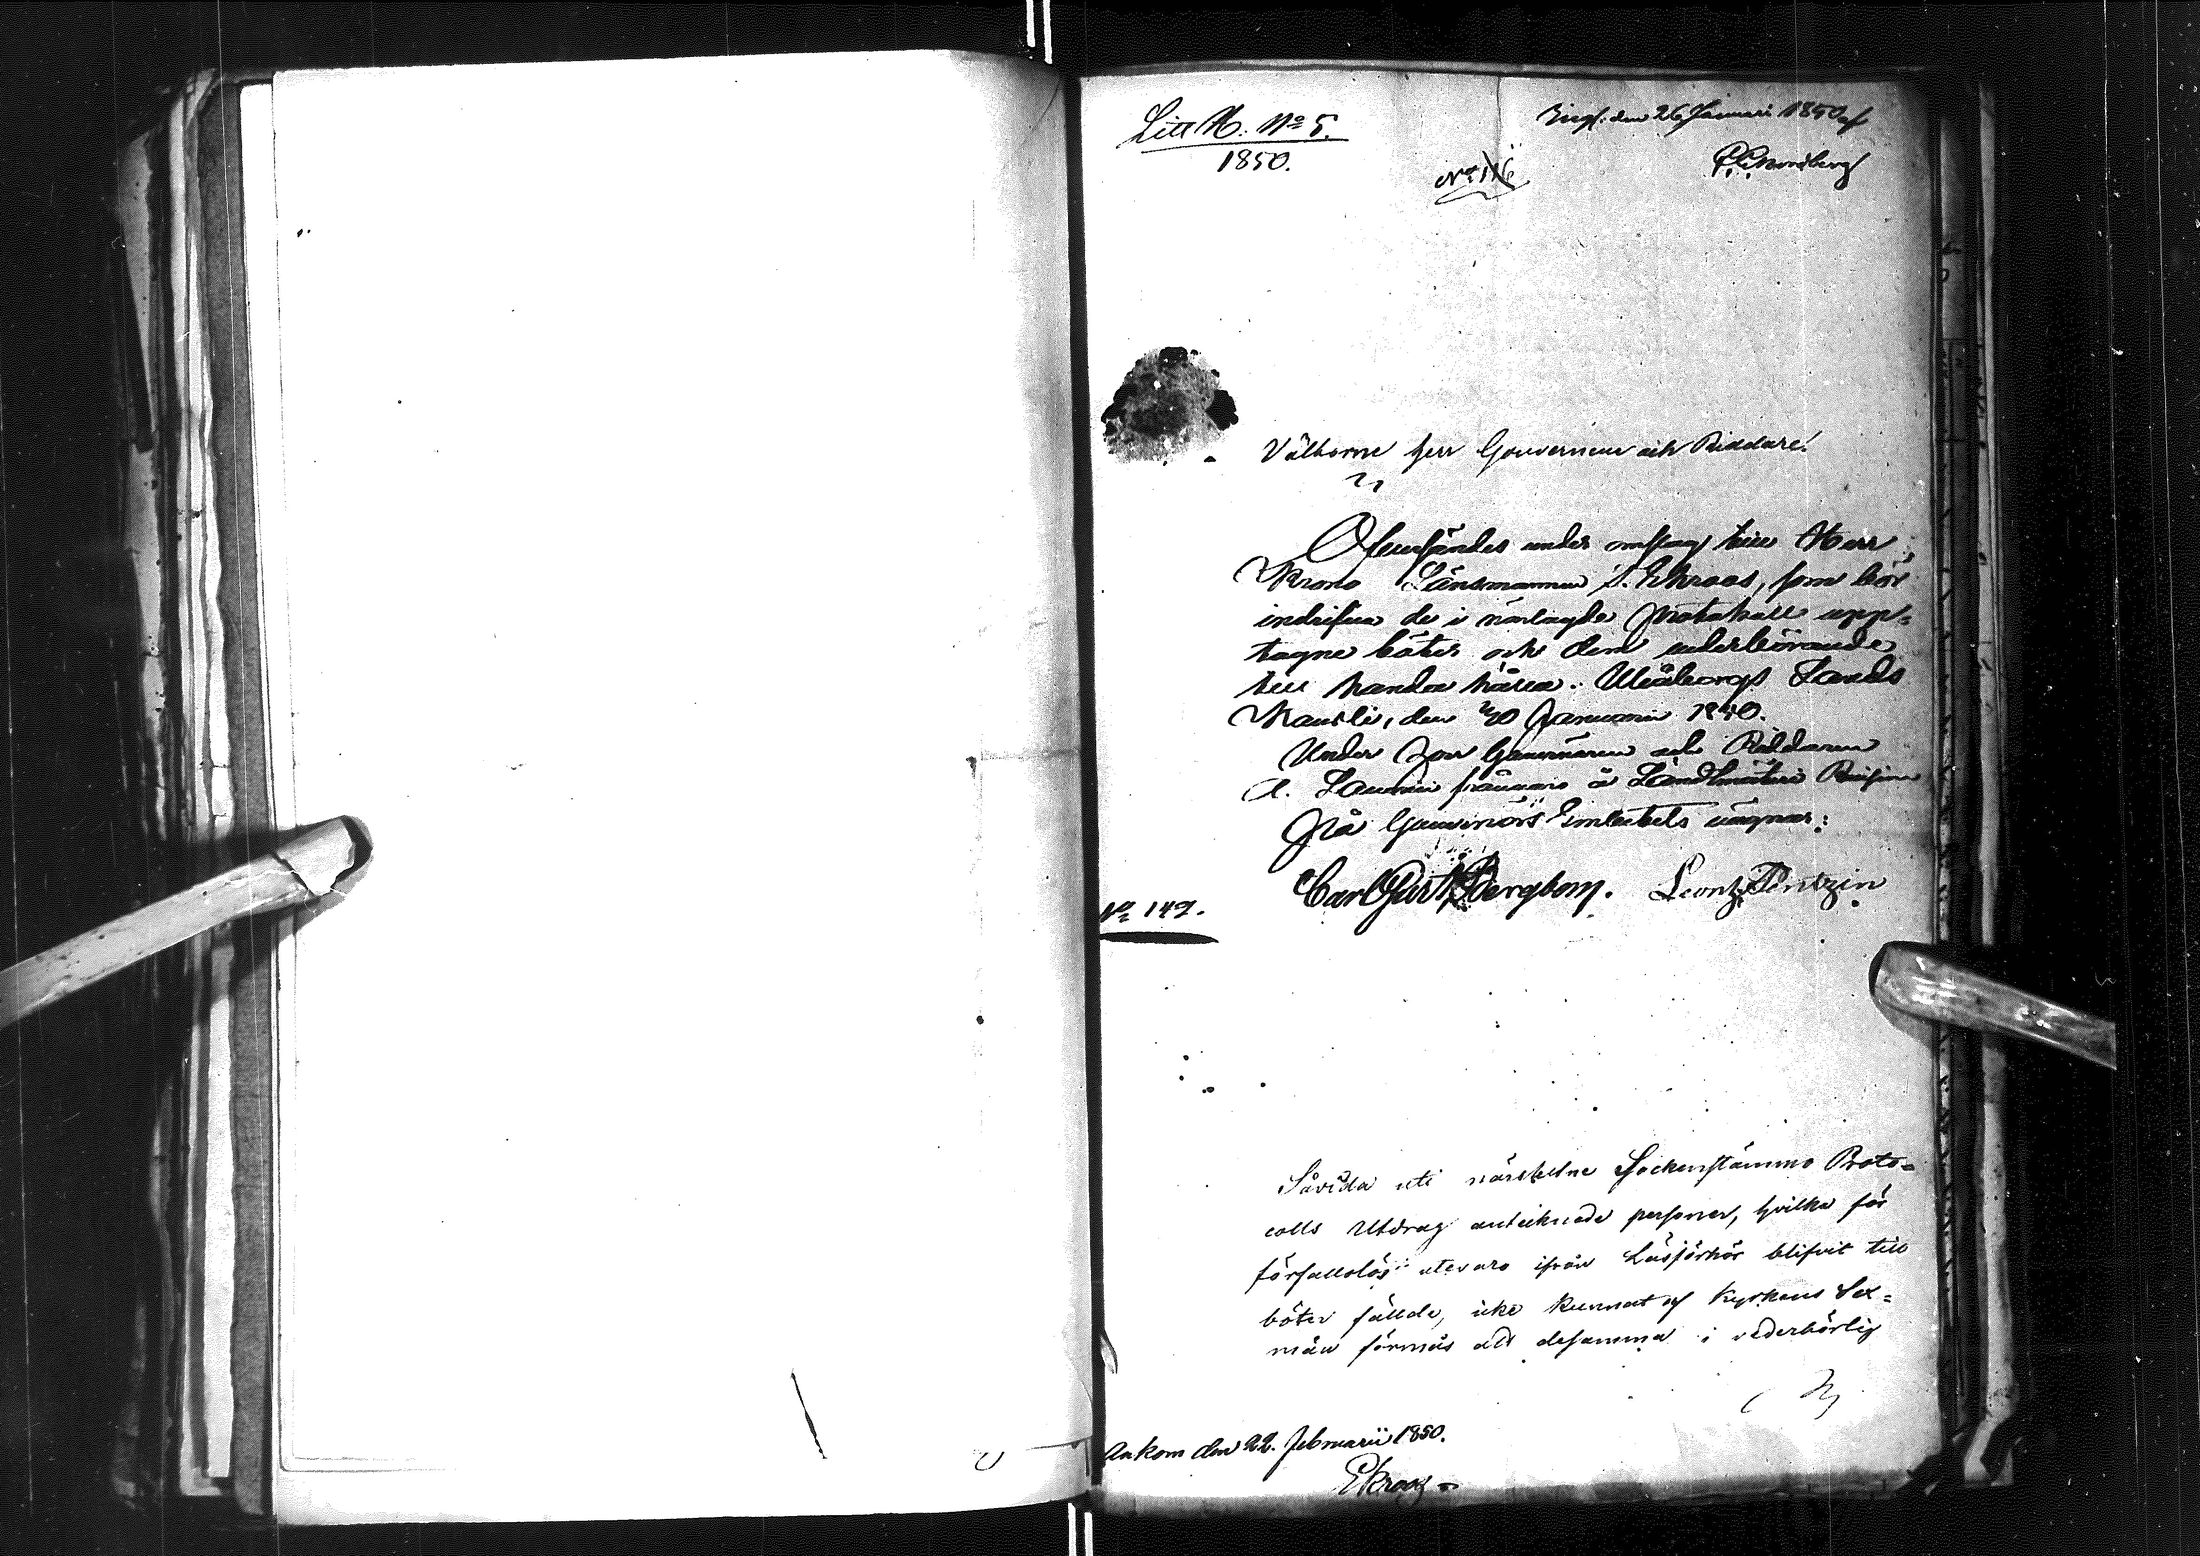 Litt A. No 5.
1850.
Ingf. den 26 Januari 1850 af
No 116
Välborne Herr Gouverneur och Riddare!
Öfversändes under omslag till Herr
Krono Länsmannen S. Ekroos, som bör
indrifva de i närlagde Protokoll upp-
tagne böter och dem vederbörande
till handa hålla. Uleåborgs Lands
Kansli, den 30 Januari 1850.
Under Herr Gouvernören och Riddaren
A. Lavonii frånvaro å Landtmäteri Revision
På Gouvernörs Embetets vägnar:
Carl Gust Bergbom. Leont. Pentzin
No 142.
Såvida uti närslutne Sockenstämmo Proto-
colls Utdrag anteknade personer, hvilka för
förfallolös utevaro ifrån Läsförhör blifvit till
böter fällde, icke kunnat af Kyrkans Sex-
män förmås att desamma i vederbörlig
Ankom den 22. Februarii 1850.
Ekroos